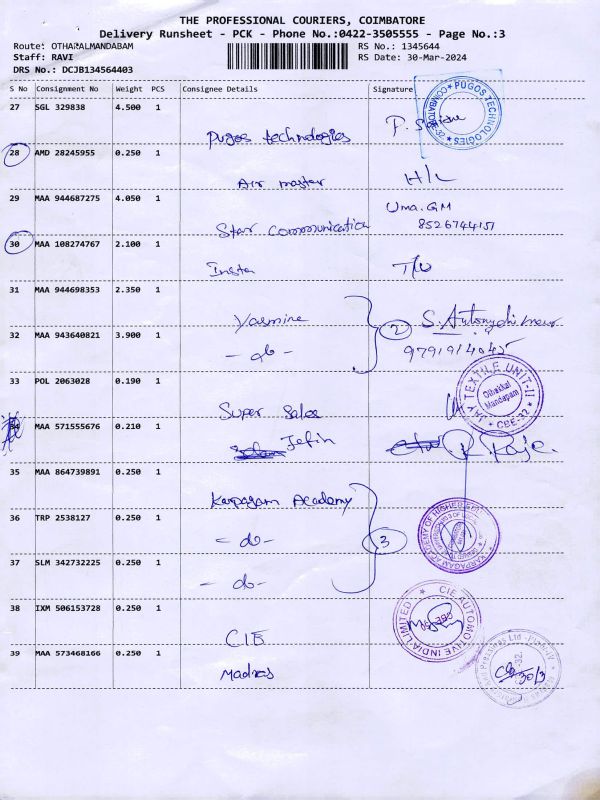 THE PROFESSIONAL COURIERS, COIMBATORE
Delivery Runsheet - PCK - Phone No.:0422-3505555 - Page No.:3
Route: OTHAKALMANDABAM
Staff: RAVI
DRS No.: DCJB134564403
RS No.: 1345644
RS Date: 30-Mar-2024
S No Consignment No Weight PCS Consignee Details Signature
27 SGL 329838 4.500 1
Pugos technologies
PUGOS TECHNOLOGIES
28 AMD 28245955 0.250 1
Air master H/L
29 MAA 944687275 4.050 1
Star Communication Uma.GM
8526744151
30 MAA 108274767 2.100 1
Insta
31 MAA 944698353 2.350 1
Yasmine 2
32 MAA 943640821 3.900 1
- do -
33 POL 2063028 0.190 1
Super Sales
TEXTILE UNIT-II
Othakkal Mandapam
CBE-32
34 MAA 571555676 0.210 1
Jefin
35 MAA 864739891 0.250 1
Karpagam Academy
36 TRP 2538127 0.250 1
- do - 3
KARPAGAM ACADEMY OF HIGHER
37 SLM 342732225 0.250 1
- do -
38 IXM 506153728 0.250 1
CIE
CIE AUTOMOTIVE INDIA LIMITED
39 MAA 573468166 0.250 1
Madras
30/3